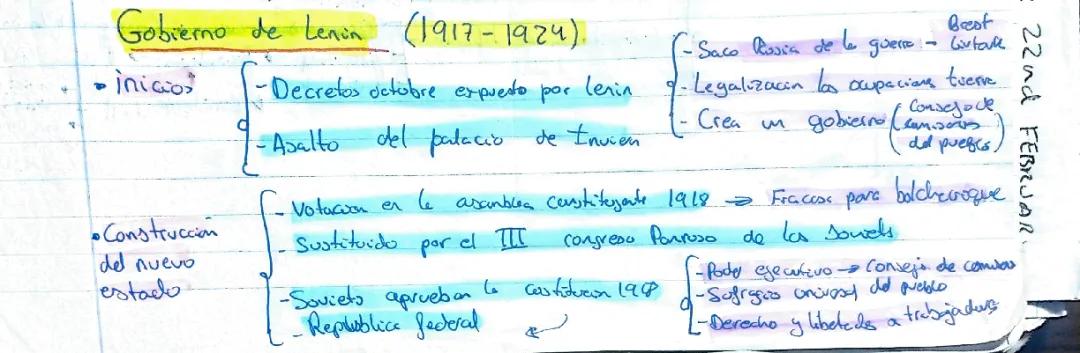 Gobierno de Lenin (1917-1924).
• inicios
- Decretos octobre expuesto por lenin
- Asalto del palacio de Invien
- Saco Russia de la guerra - Brest Livtosk
- Legalizacion las ocupacions tierra
- Crea un gobierno (Consejo de comisarios del pueblos)
22nd FEBRUAR.
• Construcción del nuevo estado
- Votacion en la asamblea constituyente 1918 → Fracaso para bolchevique
- Sustituido por el III congreso Panruso de los Soviets
- Soviets aprueban la constitucion 1918
- Republica federal
- Poder ejecutivo → Consejo de comisarios del pueblo
- Sufragio universal
- Derecho y libertades a trabajadores